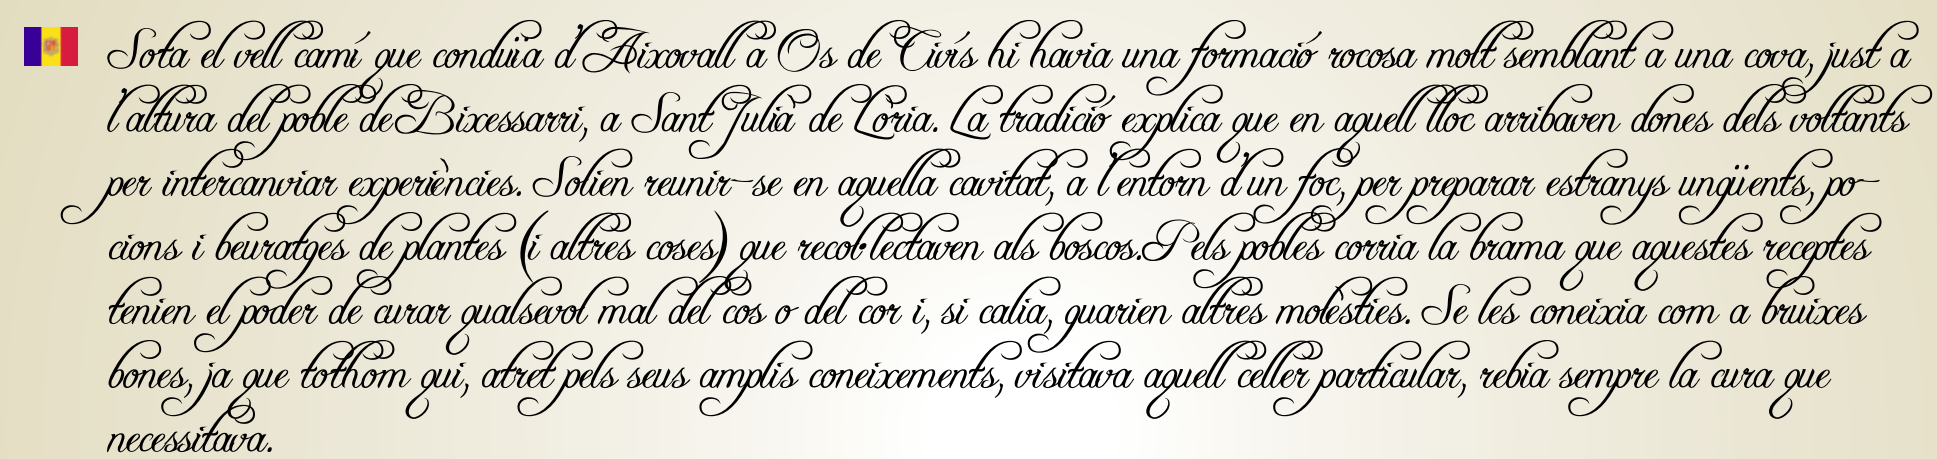 Sota el vell camí que conduïa d'Aixovall a Os de Civís hi havia una formació rocosa molt semblant a una cova, just a
l'altura del poble de Bixessarri, a Sant Julià de Lòria. La tradició explica que en aquell lloc arribaven dones dels voltants
per intercanviar experiències. Solien reunir-se en aquella cavitat, a l'entorn d'un foc, per preparar estranys ungüents, po-
cions i beuratges de plantes (i altres coses) que recol·lectaven als boscos. Pels pobles corria la brama que aquestes receptes
tenien el poder de curar qualsevol mal del cos o del cor i, si calia, guarien altres molèsties. Se les coneixia com a bruixes
bones, ja que tothom qui, atret pels seus amplis coneixements, visitava aquell celler particular, rebia sempre la cura que
necessitava.